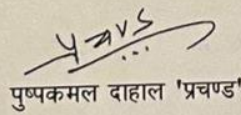 पुष्पकमल दाहाल 'प्रचण्ड'